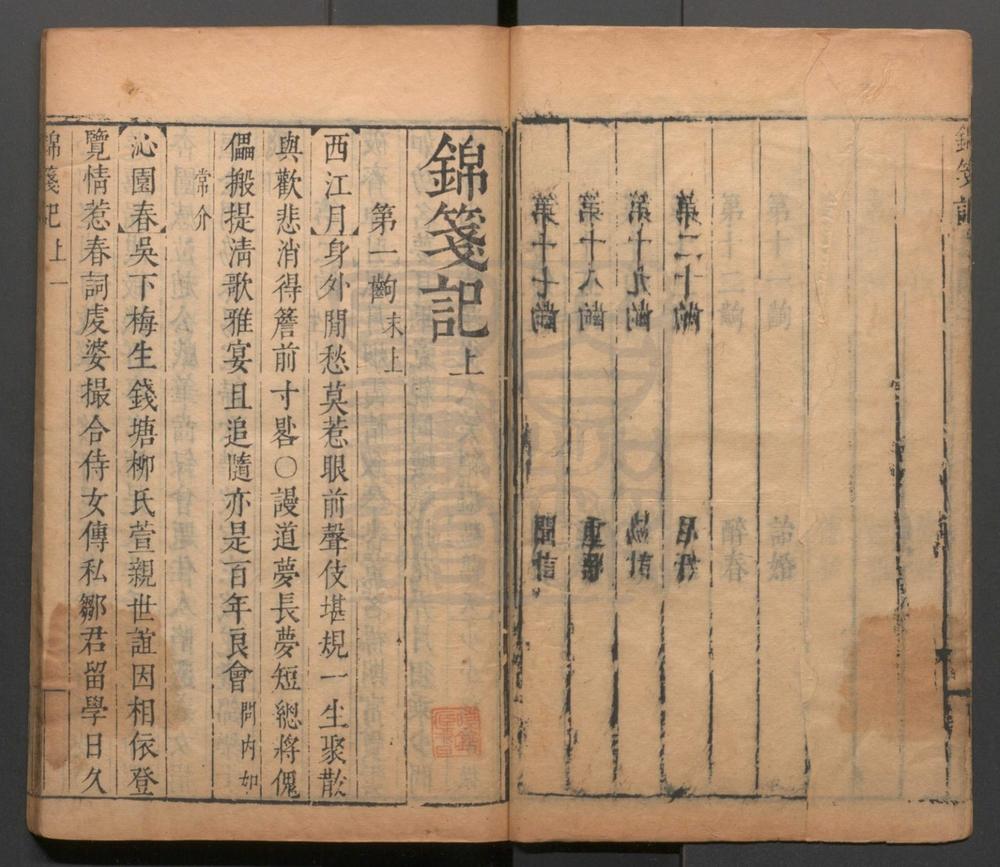 錦箋記
第十一齣 詒婚
第十二齣 醉春
第二十齣
第十九齣
第十八齣
第十七齣
錦箋記上
第一齣 末上
【西江月】身外閒愁莫惹眼前聲伎堪規一生聚散
與歡悲消得簷前寸晷○謾道夢長夢短緫將傀
儡搬提淸歌雅宴且追隨亦是百年良會 問内如
常介
【沁園春】吳下梅生錢塘柳氏萱親世誼因相依登
覽情惹春詞虔婆撮合侍女傳私鄒君留學日久
錦箋記 上 一